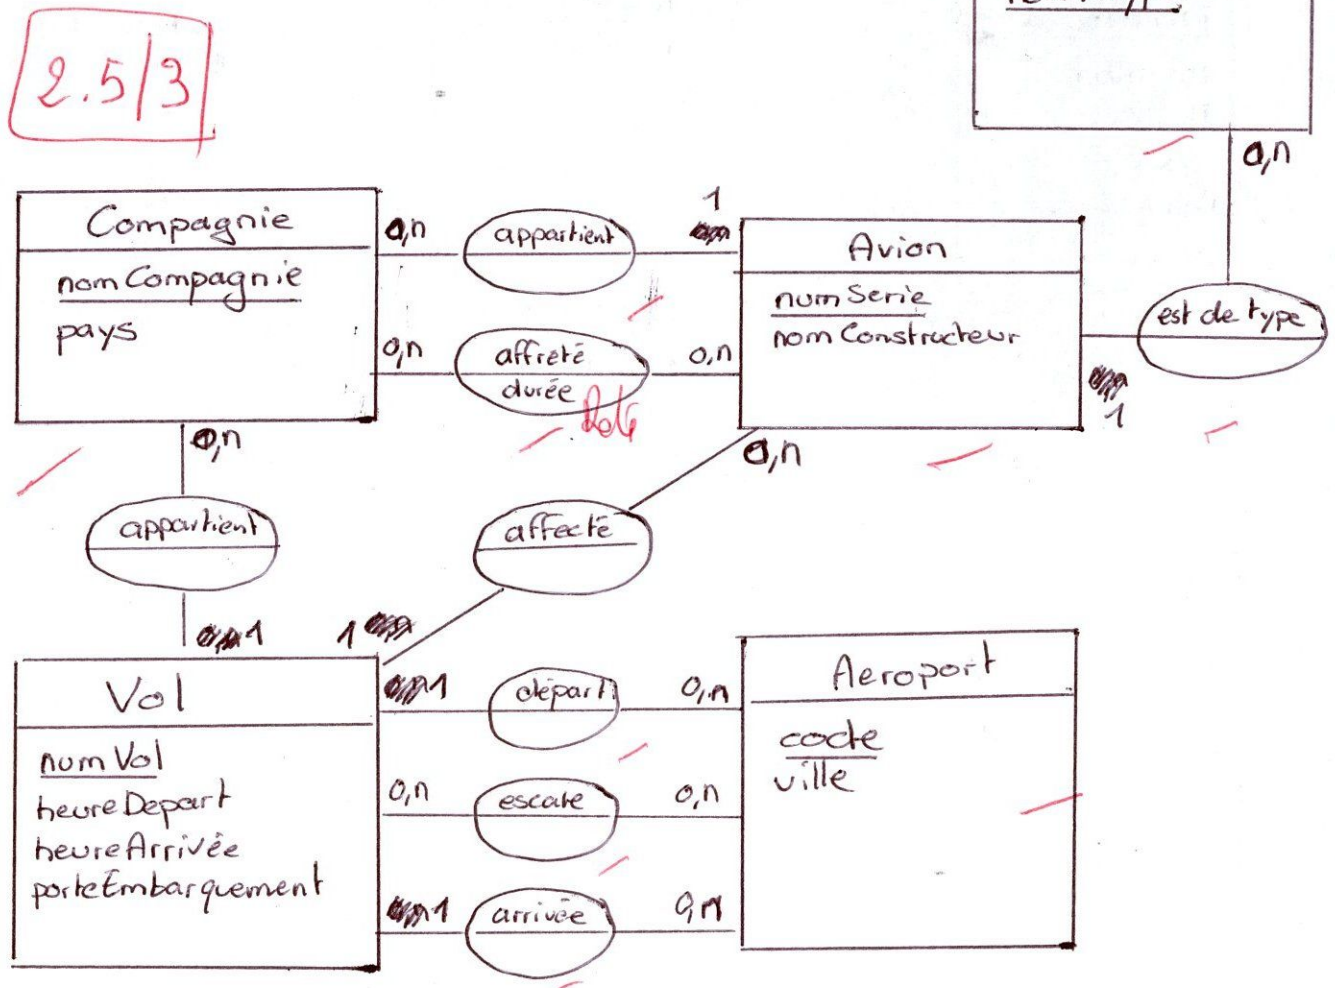 2.5/3
0,n
Compagnie
nomCompagnie
pays
0,n
appartient
1
0,n
affreté
durée
0,n
Avion
numSerie
nomConstructeur
est de type
1
0,n
appartient
1
affecté
0,n
1
Vol
numVol
heureDepart
heureArrivée
porteEmbarquement
1
départ
0,n
0,n
escale
0,n
1
arrivée
0,n
Aeroport
code
ville